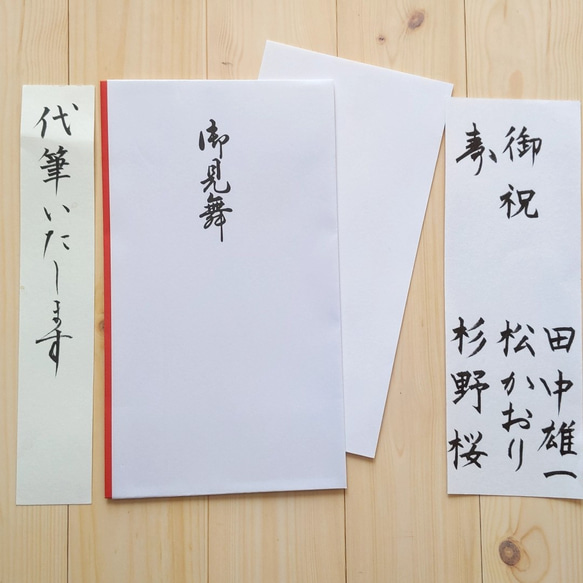 代筆いたします
御見舞
御祝
寿
田中雄一
松かおり
杉野桜